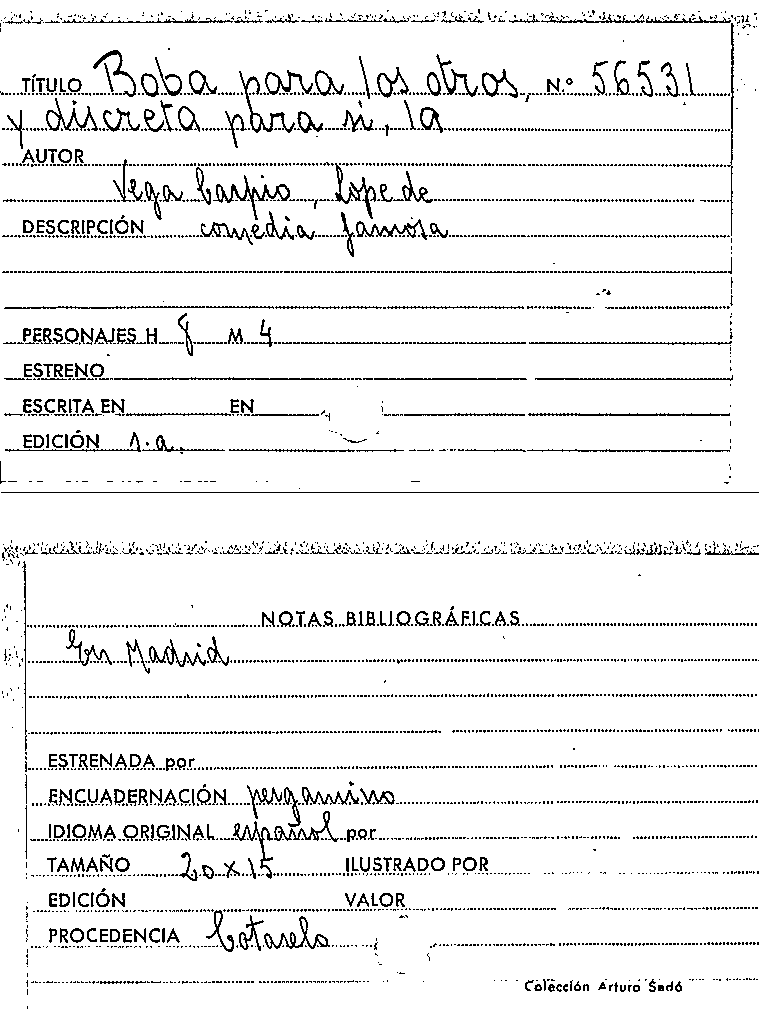 TÍTULO Boba para los otros, N.º 56531
y discreta para si, la
AUTOR
Vega Carpio, Lope de
DESCRIPCIÓN comedia famosa
PERSONAJES H 8 M 4
ESTRENO
ESCRITA EN EN
EDICIÓN s.a.
NOTAS BIBLIOGRÁFICAS
En Madrid
ESTRENADA por
ENCUADERNACIÓN pergamino
IDIOMA ORIGINAL español por
TAMAÑO 20 x 15 ILUSTRADO POR
EDICIÓN VALOR
PROCEDENCIA Cotarelo
Colección Arturo Sedó